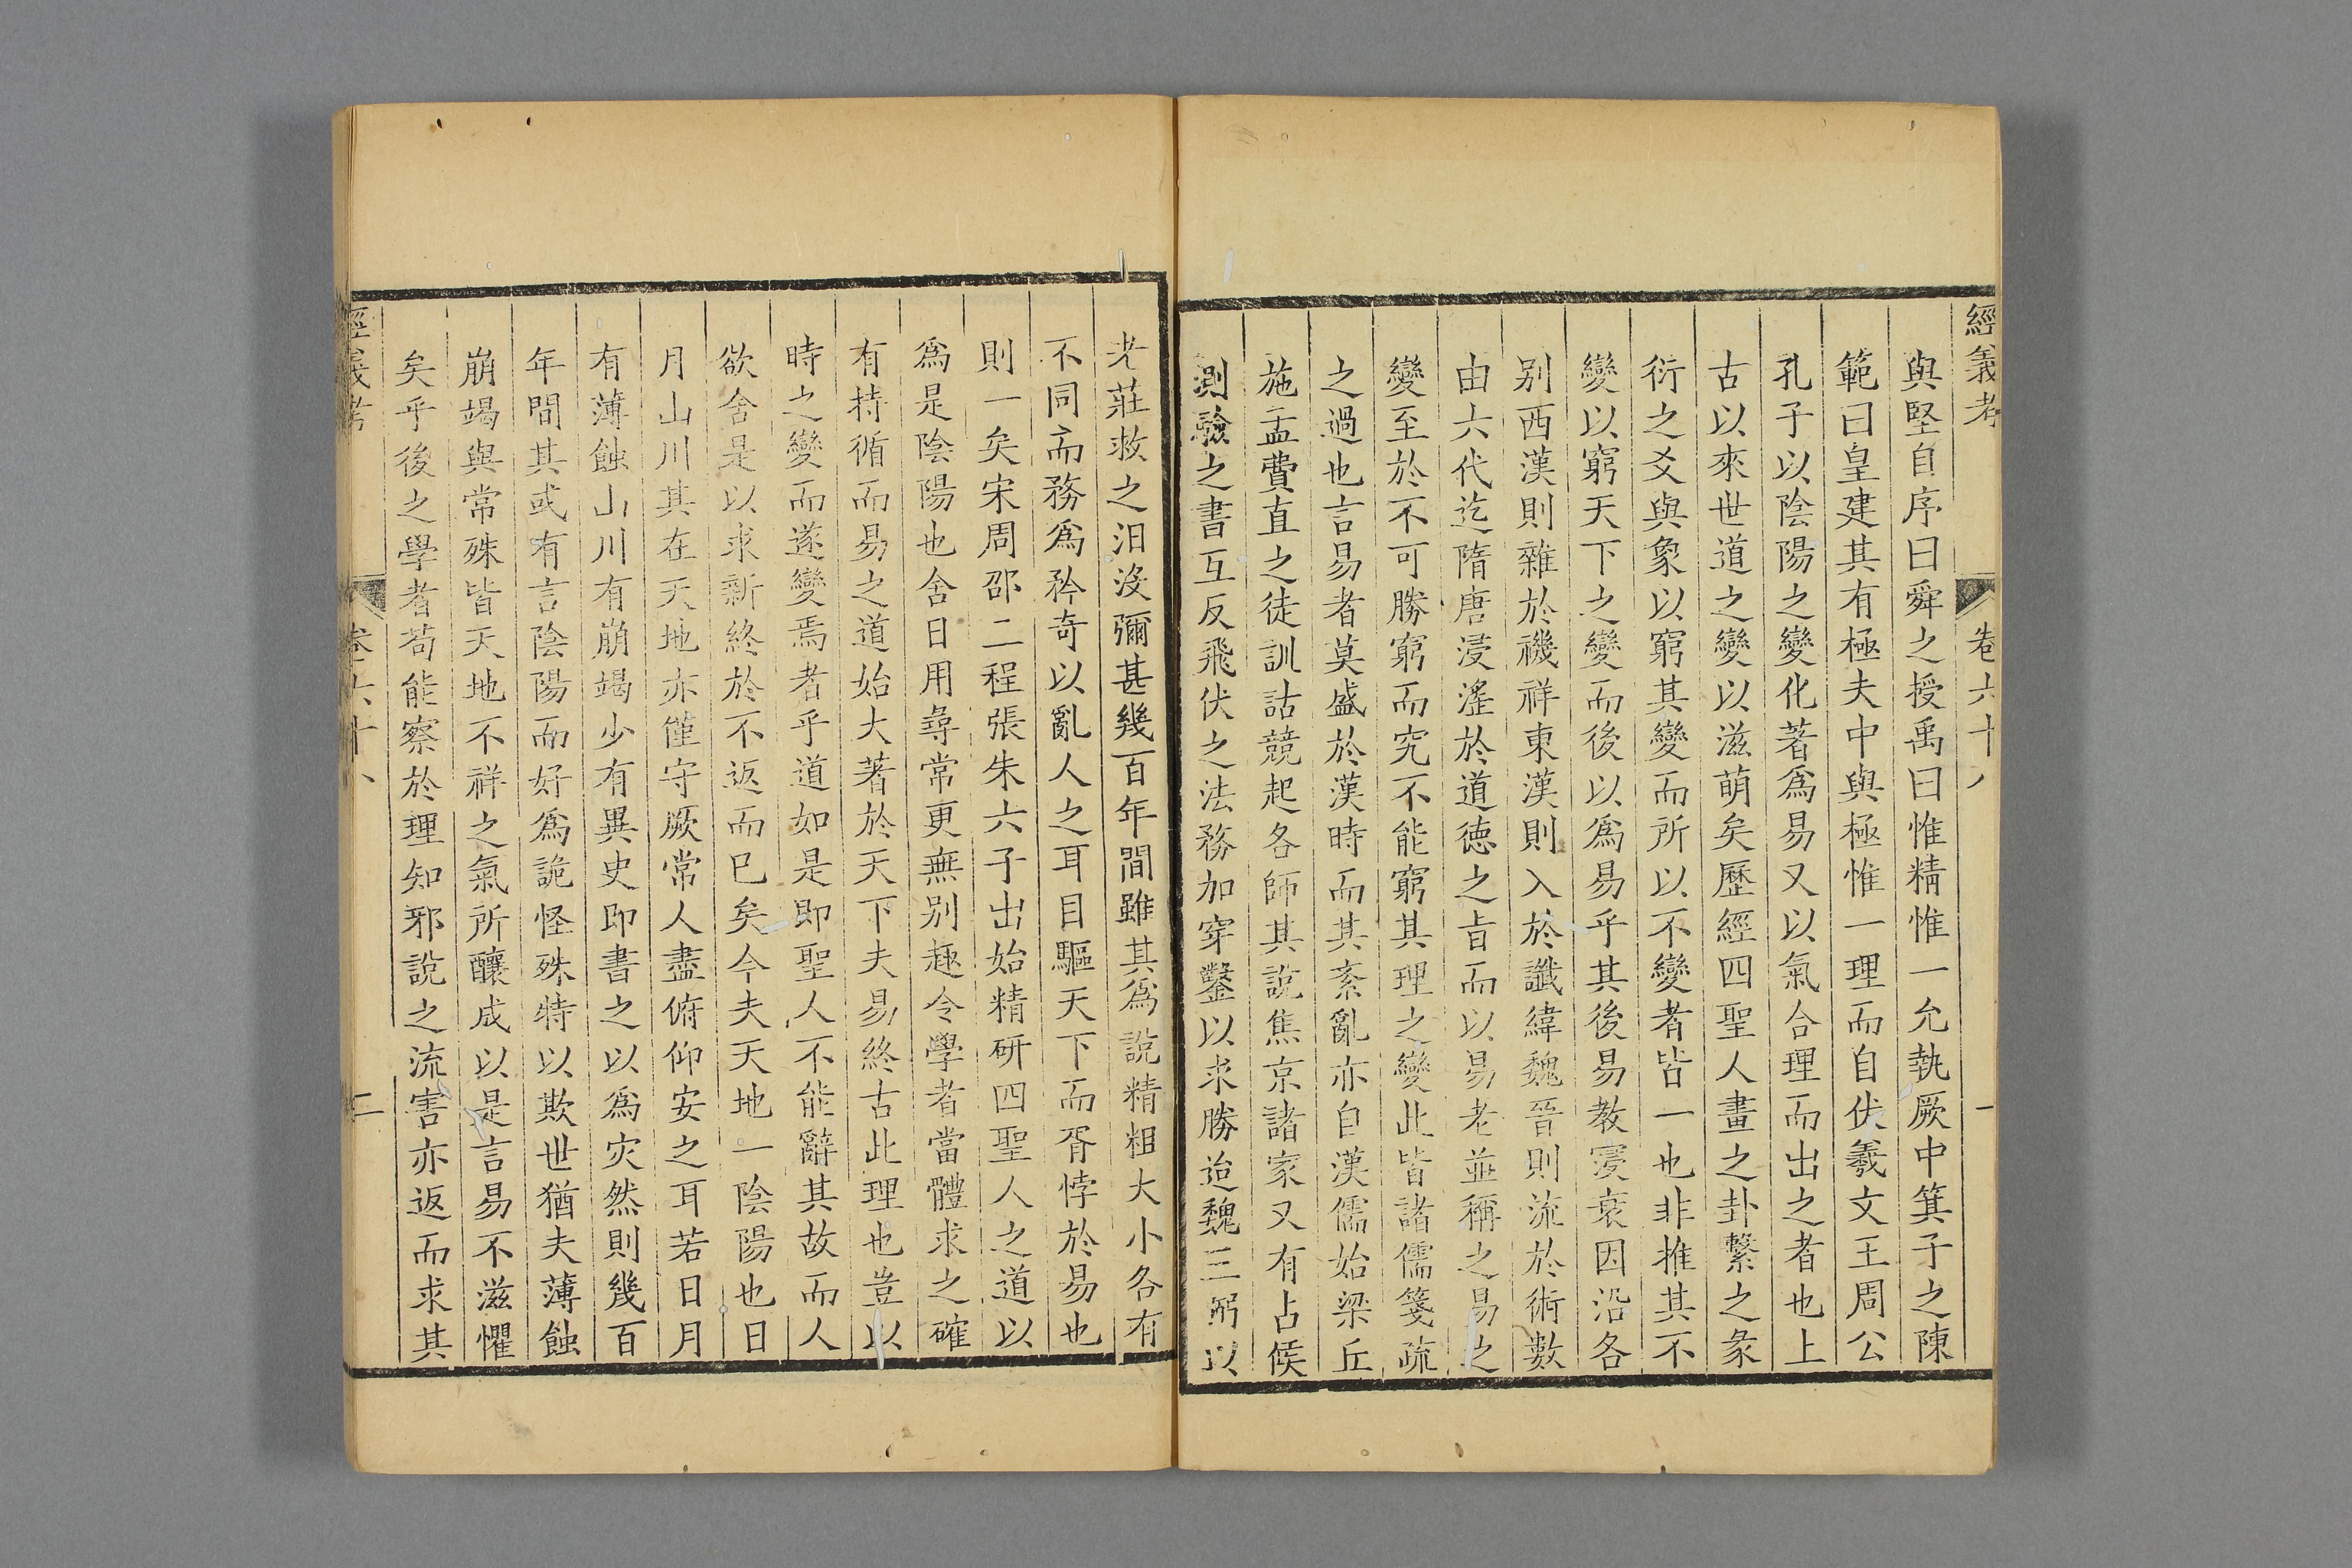 經義考
卷六十八
一
與堅自序曰舜之授禹曰惟精惟一允執厥中箕子之陳
範曰皇建其有極夫中與極惟一理而自伏羲文王周公
孔子以陰陽之變化著爲易又以氣合理而出之者也上
古以來世道之變以滋萌矣歷經四聖人畫之卦繫之彖
衍之爻與象以窮其變而所以不變者皆一也非推其不
變以窮天下之變而後以爲易乎其後易教寖衰因沿各
别西漢則雜於禨祥東漢則入於讖緯魏晉則流於術數
由六代迄隋唐浸淫於道德之旨而以易老並稱之易之
變至於不可勝窮而究不能窮其理之變此皆諸儒箋疏
之過也言易者莫盛於漢時而其紊亂亦自漢儒始梁丘
施孟費直之徒訓詁競起各師其說焦京諸家又有占候
測驗之書互反飛伏之法務加穿鑿以求勝迨魏王弼以
老莊救之汨沒彌甚幾百年間雖其爲說精粗大小各有
不同而務爲矜奇以亂人之耳目驅天下而胥悖於易也
則一矣宋周邵二程張朱六子出始精研四聖人之道以
爲是陰陽也舍日用尋常更無别趣令學者當體求之確
有持循而易之道始大著於天下夫易終古此理也豈以
時之變而遂變焉者乎道如是即聖人不能辭其故而人
欲舍是以求新終於不返而已矣今夫天地一陰陽也日
月山川其在天地亦僅守厥常人盡俯仰安之耳若日月
有薄蝕山川有崩竭少有異史即書之以爲灾然則幾百
年間其或有言陰陽而好爲詭怪殊特以欺世猶夫薄蝕
崩竭與常殊皆天地不祥之氣所釀成以是言易不滋懼
矣乎後之學者苟能察於理知邪說之流害亦返而求其
經義考
卷六十八
二